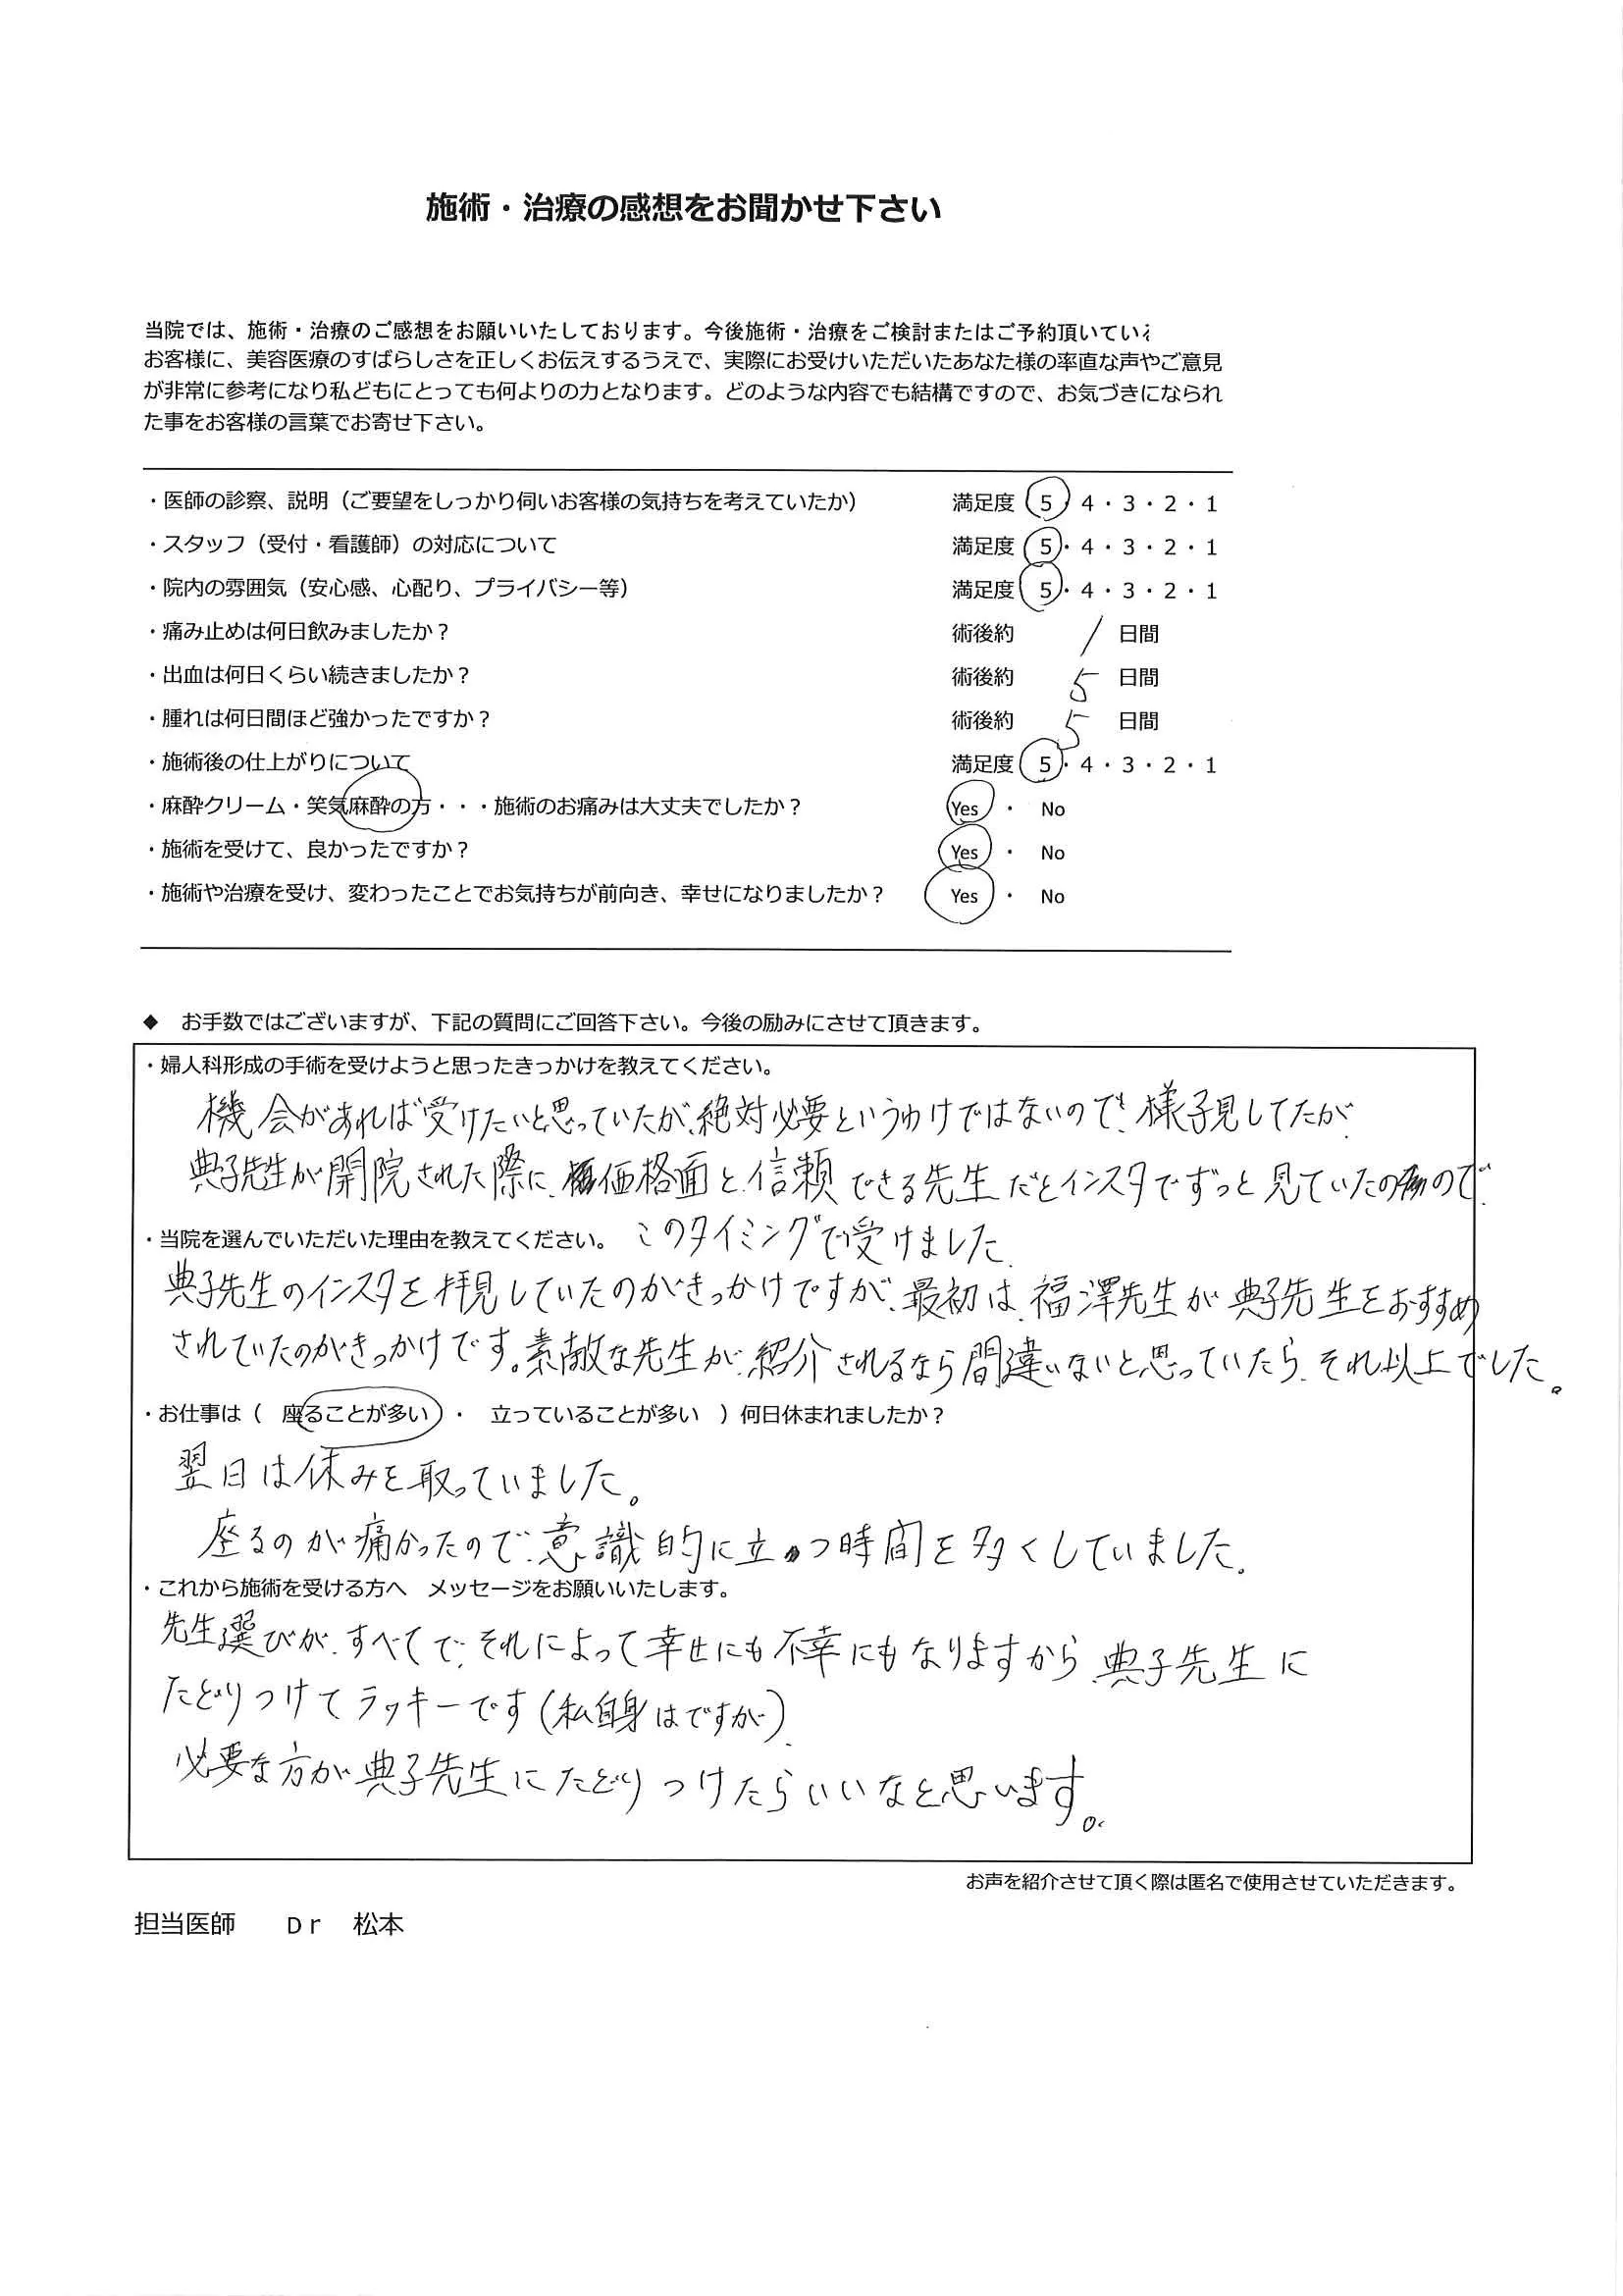 施術・治療の感想をお聞かせ下さい
当院では、施術・治療のご感想をお願いいたしております。今後施術・治療をご検討またはご予約頂いている
お客様に、美容医療のすばらしさを正しくお伝えするうえで、実際にお受けいただいたあなた様の率直な声やご意見
が非常に参考になり私どもにとっても何よりの力となります。どのような内容でも結構ですので、お気づきになられ
た事をお客様の言葉でお寄せ下さい。
・医師の診察、説明（ご要望をしっかり伺いお客様の気持ちを考えていたか） 満足度 5・4・3・2・1
・スタッフ（受付・看護師）の対応について 満足度 5・4・3・2・1
・院内の雰囲気（安心感、心配り、プライバシー等） 満足度 5・4・3・2・1
・痛み止めは何日飲みましたか？ 術後約 / 日間
・出血は何日くらい続きましたか？ 術後約 5 日間
・腫れは何日間ほど強かったですか？ 術後約 5 日間
・施術後の仕上がりについて 満足度 5・4・3・2・1
・麻酔クリーム・笑気麻酔の方・・・施術のお痛みは大丈夫でしたか？ Yes ・ No
・施術を受けて、良かったですか？ Yes ・ No
・施術や治療を受け、変わったことでお気持ちが前向き、幸せになりましたか？ Yes ・ No
◆ お手数ではございますが、下記の質問にご回答下さい。今後の励みにさせて頂きます。
・婦人科形成の手術を受けようと思ったきっかけを教えてください。
機会があれば受けたいと思っていたが、絶対必要というわけではないので、様子見してたが、
典子先生が開院された際に、価格面と、信頼できる先生だとインスタでずっと見ていたので、
・当院を選んでいただいた理由を教えてください。 このタイミングで受けました。
典子先生のインスタを拝見していたのがきっかけですが、最初は、福澤先生が典子先生をおすすめ
されていたのがきっかけです。素敵な先生が、紹介されるなら間違いないと思っていたら、それ以上でした。
・お仕事は（ 座ることが多い ・ 立っていることが多い ）何日休まれましたか？
翌日は休みを取っていました。
座るのが痛かったので、意識的に立つ時間を多くしていました。
・これから施術を受ける方へ メッセージをお願いいたします。
先生選びが、すべてで、それによって幸せにも不幸にもなりますから、典子先生に
たどりつけてラッキーです（私自身はですが）、
必要な方が典子先生にたどりつけたらいいなと思います。
お声を紹介させて頂く際は匿名で使用させていただきます。
担当医師 Dr 松本